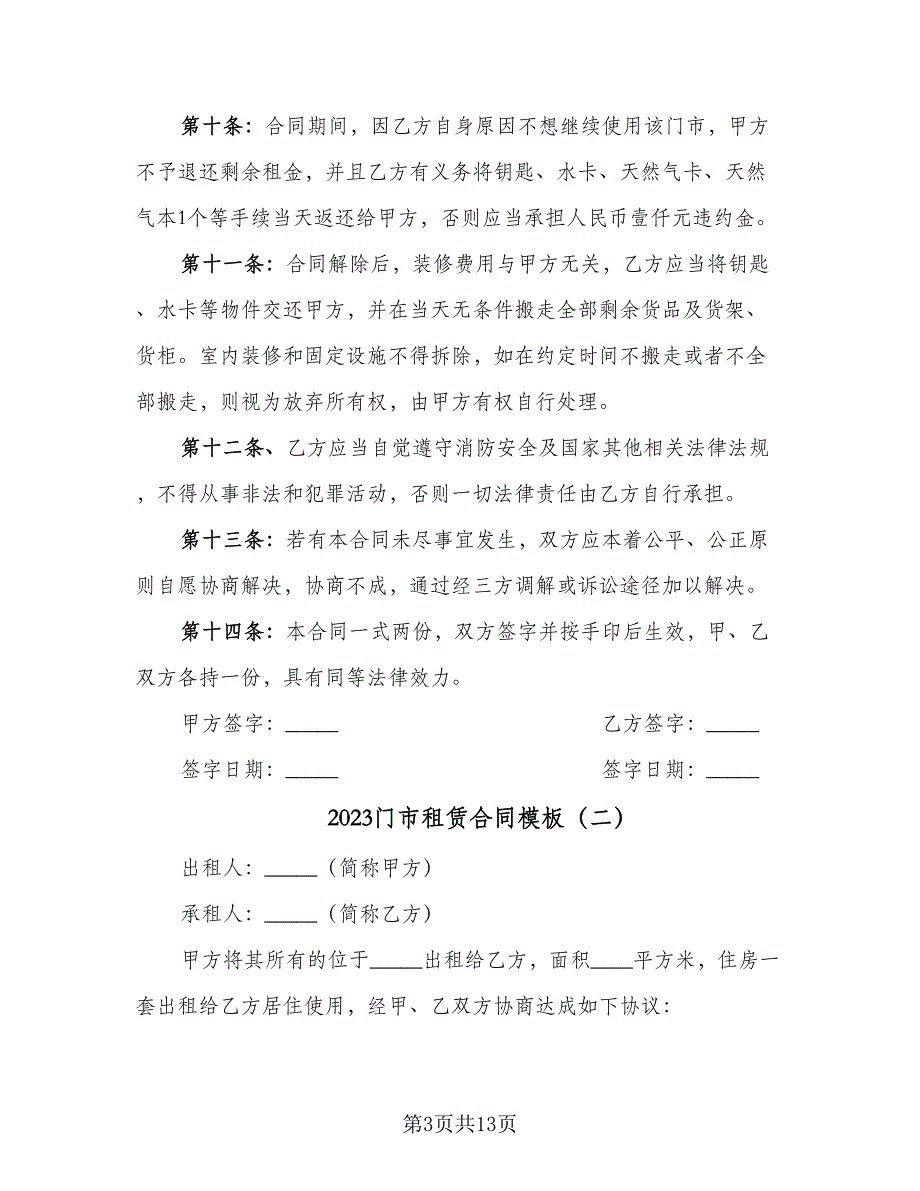 第十条：合同期间，因乙方自身原因不想继续使用该门市，甲方
不予退还剩余租金，并且乙方有义务将钥匙、水卡、天然气卡、天然
气本1个等手续当天返还给甲方，否则应当承担人民币壹仟元违约金。
第十一条：合同解除后，装修费用与甲方无关，乙方应当将钥匙
、水卡等物件交还甲方，并在当天无条件搬走全部剩余货品及货架、
货柜。室内装修和固定设施不得拆除，如在约定时间不搬走或者不全
部搬走，则视为放弃所有权，由甲方有权自行处理。
第十二条、乙方应当自觉遵守消防安全及国家其他相关法律法规
，不得从事非法和犯罪活动，否则一切法律责任由乙方自行承担。
第十三条：若有本合同未尽事宜发生，双方应本着公平、公正原
则自愿协商解决，协商不成，通过经三方调解或诉讼途径加以解决。
第十四条：本合同一式两份，双方签字并按手印后生效，甲、乙
双方各持一份，具有同等法律效力。
甲方签字：_____ 乙方签字：_____
签字日期：_____ 签字日期：_____
2023门市租赁合同模板（二）
出租人：_____（简称甲方）
承租人：_____（简称乙方）
甲方将其所有的位于_____出租给乙方，面积____平方米，住房一
套出租给乙方居住使用，经甲、乙双方协商达成如下协议：
第3页共13页